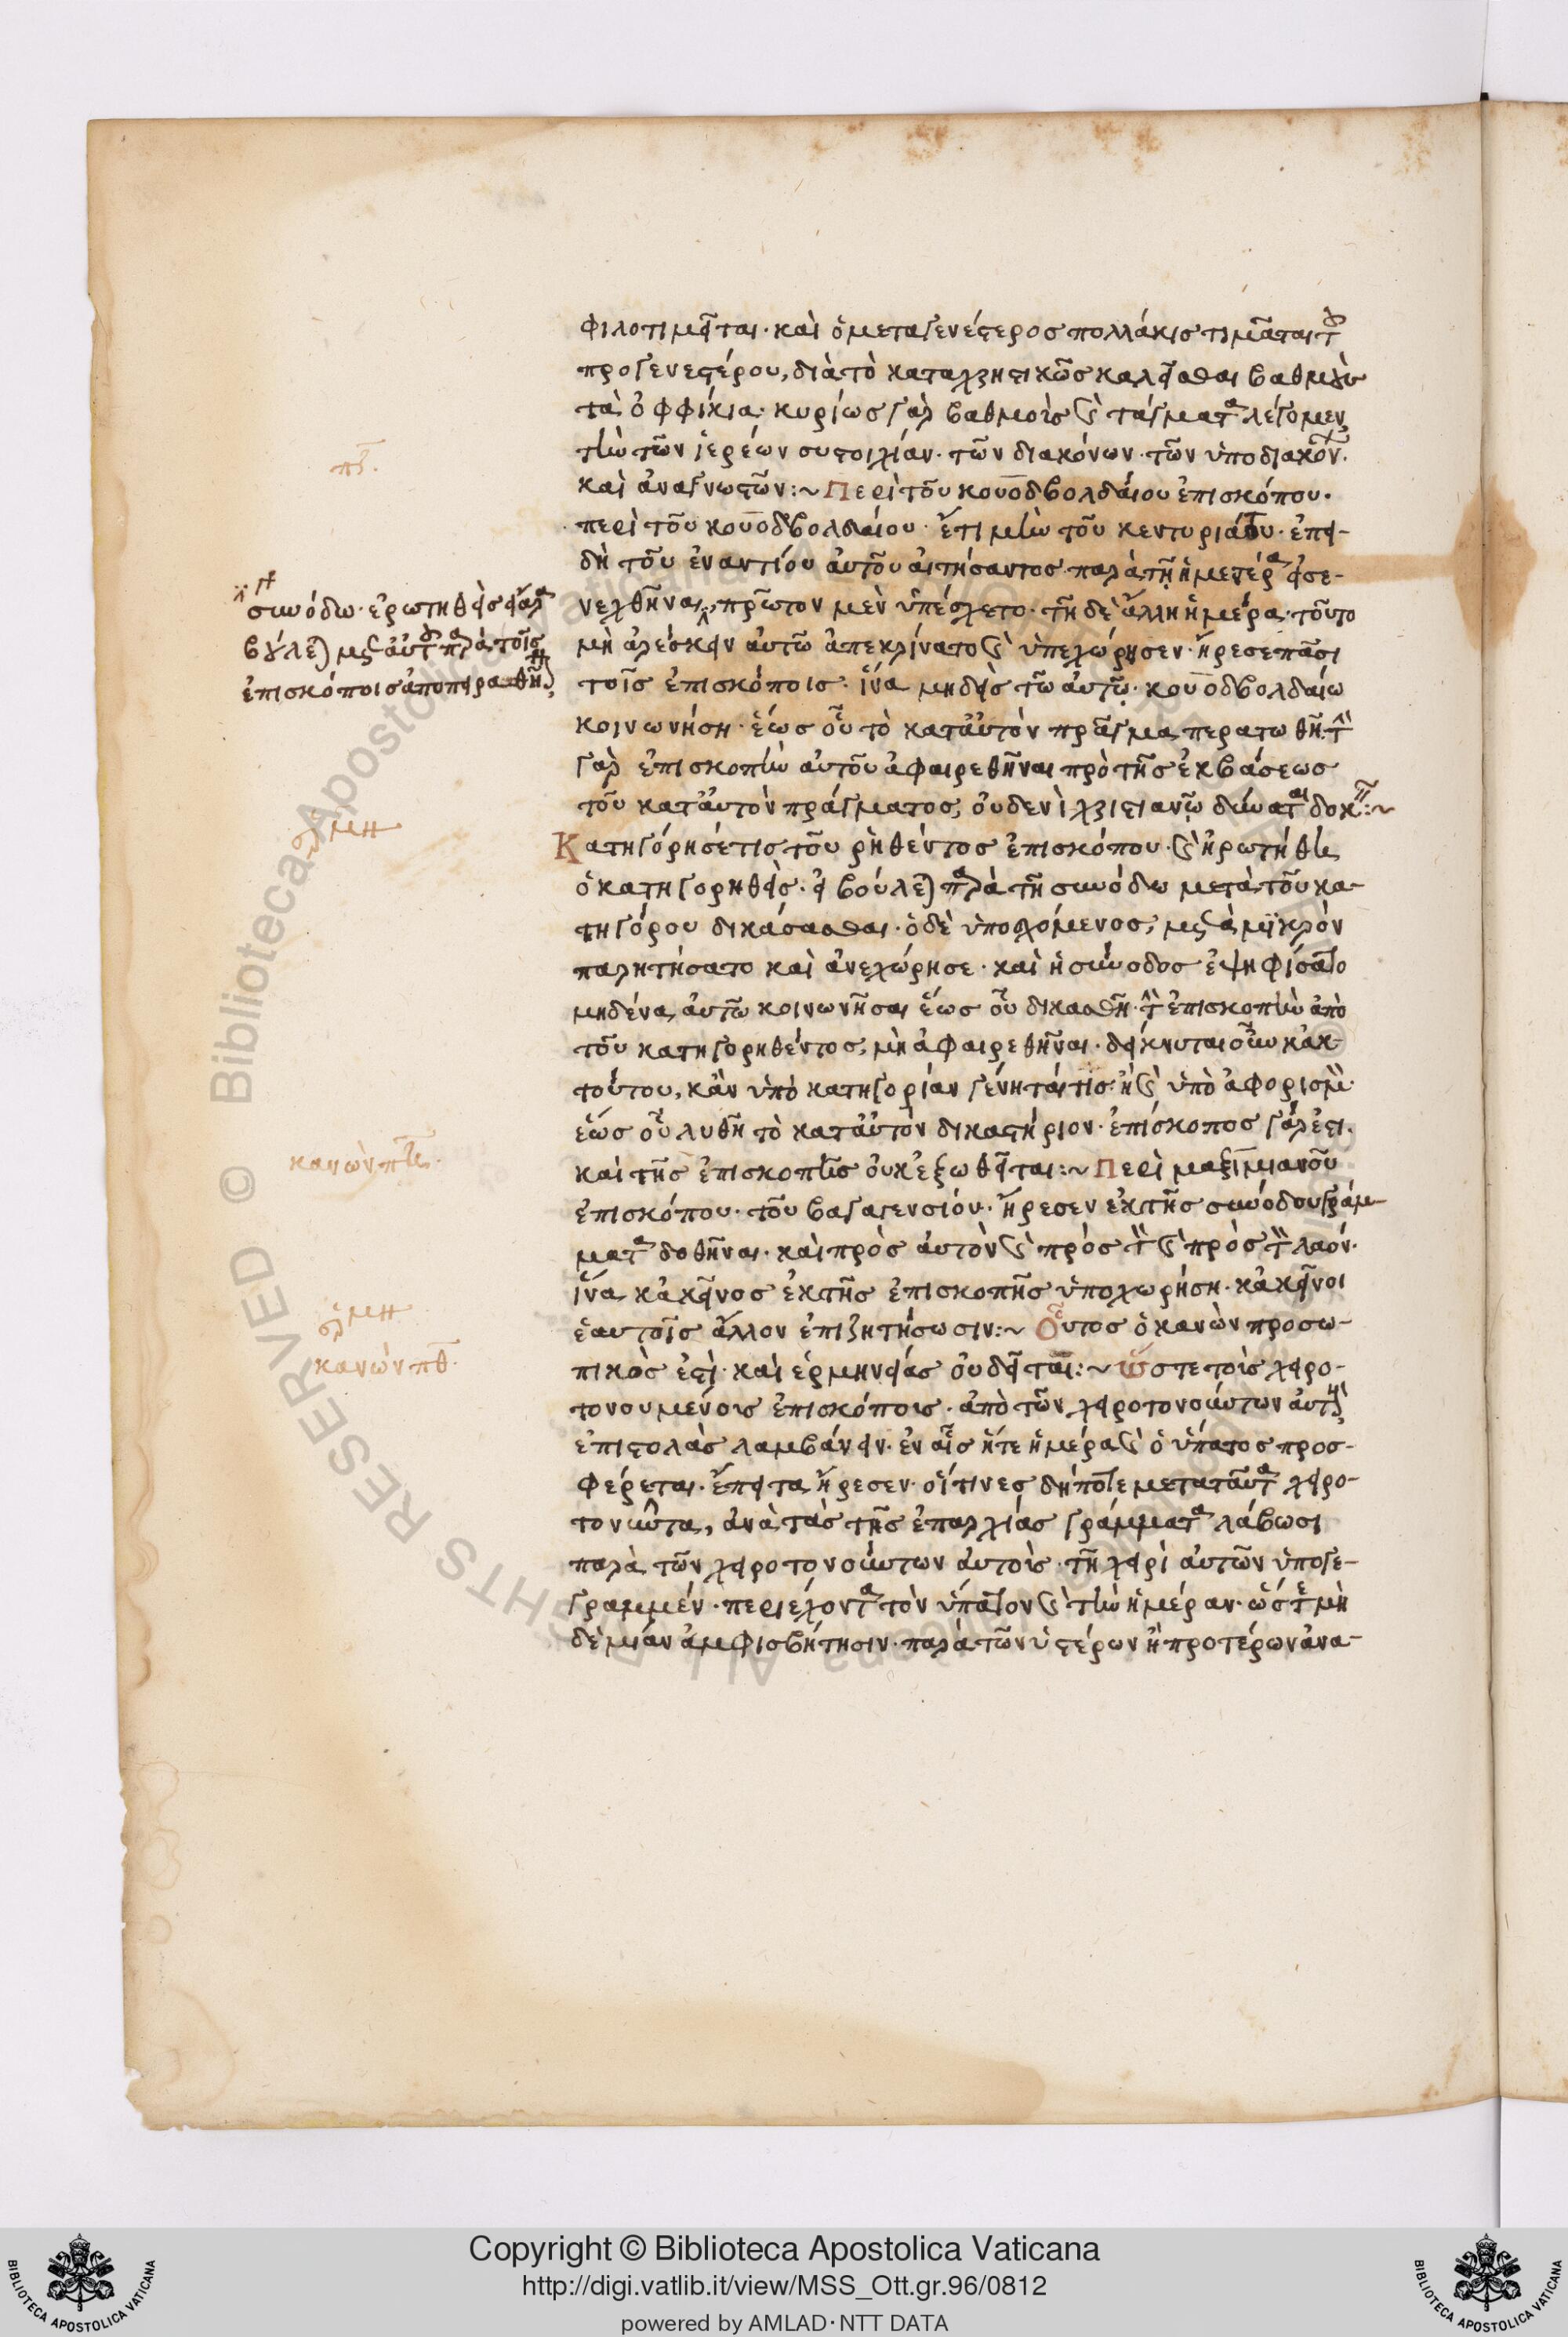 φιλοτιμεῖται· καὶ ὁ μεταγενέστερος πολλάκις τιμᾶται τοῦ
προγενεστέρου, διὰ τὸ καταχρηστικῶς καλεῖσθαι βαθμοὺς
τὰ ὀφφίκια· κυρίως γὰρ βαθμοὺς καὶ τάγματα λέγομεν
τὴν τῶν ἱερέων συστοιχίαν· τῶν διακόνων· τῶν ὑποδιακόνων·
καὶ ἀναγνωστῶν:~ Περὶ τοῦ κουοδβολδαίου ἐπισκόπου·
περὶ τοῦ κουοδβολδαίου· ἔτι μὴν τοῦ κεντυριάτου· ἐπει-
δὴ τοῦ ἐναντίου αὐτοῦ αἰτήσαντος παρὰ τῇ ἡμετέρα εἰσε-
νεχθῆναι, πρῶτον μὲν ὑπέσχετο· τῇ δὲ ἄλλη ἡμέρα· τοῦτο
μὴ ἀρέσκειν αὐτῶ ἀπεκρίνατο καὶ ὑπεχώρησεν· ἤρεσε πᾶσι
τοῖς ἐπισκόποις· ἵνα μηδεὶς τῶ αὐτῶ· κουοδβολδαίω
κοινωνήση· ἕως οὗ τὸ κατ' αὐτὸν πρᾶγμα περατωθῆ· τὴν
γὰρ ἐπισκοπὴν αὐτοῦ ἀφαιρεθῆναι πρὸ τῆς ἐκβάσεως
τοῦ κατ' αὐτὸν πράγματος, οὐδενὶ χριστιανῶ δύναται δοκεῖν:~
Κατηγόρησέ τις τοῦ ῥηθέντος ἐπισκόπου· καὶ ἠρωτήθη
ὁ κατηγορηθεὶς· εἰ βούλεται παρὰ τῆ συνόδω μετὰ τοῦ κα-
τηγόρου δικάσασθαι· ὁ δὲ ὑποσχόμενος, μετὰ μικρὸν
παρητήσατο καὶ ἀνεχώρησε· καὶ ἡ σύνοδος ἐψηφίσατο
μηδένα αὐτῶ κοινωνῆσαι ἕως οὗ δικασθῆ· τὴν ἐπισκοπὴν ἀπὸ
τοῦ κατηγορηθέντος, μὴ ἀφαιρεθῆναι· δείκνυται οὖν κἀκ
τούτου, κἂν ὑπὸ κατηγορίαν γένηταί τις· ἢ καὶ ὑπὸ ἀφορισμὸν·
ἕως οὗ λυθῆ τὸ κατ' αὐτὸν δικαστήριον· ἐπίσκοπος γάρ ἐστι·
καὶ τῆς ἐπισκοπῆς οὐκ ἐξωθεῖται:~ Περὶ μαξιμιανοῦ
ἐπισκόπου· τοῦ βαγαγενσιόν· ἤρεσεν ἐκ τῆς συνόδου γράμ-
ματα δοθῆναι· καὶ πρὸς αὐτὸν καὶ πρὸς τὸν καὶ πρὸς τὸν λαόν·
ἵνα κἀκεῖνος ἐκ τῆς ἐπισκοπῆς ὑποχωρήση· κἀκεῖνοι
ἑαυτοῖς ἄλλον ἐπιζητήσωσιν:~ Οὗτος ὁ κανὼν προσω-
πικὸς ἐστὶ· καὶ ἑρμηνείας οὐ δεῖται:~ ὥστε τοῖς χειρο-
τονουμένοις ἐπισκόποις· ἀπὸ τῶν χειροτονούντων αὐτοὺς
ἐπιστολὰς λαμβάνειν· ἐν αἷς ἥτε ἡμέρα καὶ ὁ ὕπατος προσ-
φέρεται· ἔπειτα ἤρεσεν· οἵτινες δήποτε μετὰ ταῦτα χειρο-
τονῶνται, ἀνὰ τὰς τῆς ἐπαρχίας γράμματα λάβωσι
παρὰ τῶν χειροτονούντων αὐτοὺς· τῆ χειρὶ αὐτῶν ὑπογε-
γραμμέν· περιέχοντα τὸν ὕπατον καὶ τὴν ἡμέραν· ὥστε μὴ
δὲ μίαν ἀμφισβήτησιν· παρὰ τῶν ὑστέρων ἢ προτέρων ἀνα-
πϛ·
συνόδω· ἐρωτηθεὶς εἰ ἄρα
βούλεται μετ' αὐτοῦ παρὰ τοῖς
ἐπισκόποις ἀποπειραθῆναι
ἑρμη
κανὼν πη·
ἑρμη
κανὼν πθ·
Copyright © Biblioteca Apostolica Vaticana
http://digi.vatlib.it/view/MSS_Ott.gr.96/0812
powered by AMLAD·NTT DATA
BIBLIOTECA APOSTOLICA VATICANA
BIBLIOTECA APOSTOLICA VATICANA
© Biblioteca Apostolica Vaticana ALL RIGHTS RESERVED